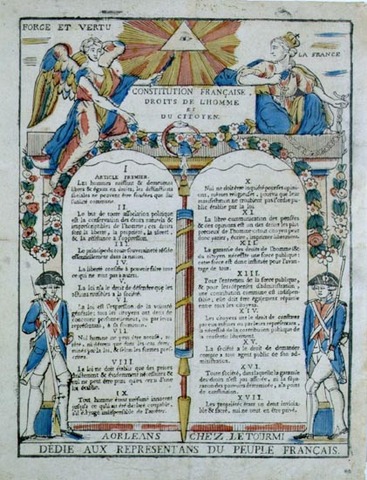 FORCE ET VERTU
LA FRANCE
CONSTITUTION FRANÇAISE.
DROITS DE L'HOMME
ET
DU CITOYEN.
I
ARTICLE PREMIER.
Les hommes naissent & demeurent
libres & égaux en droits; les distinctions
sociales ne peuvent être fondées que sur
l'utilité commune.
II.
Le but de toute association politique
est la conservation des droits naturels &
imprescriptibles de l'homme; ces droits
sont la liberté, la propriété, la sûreté,
& la résistance à l'oppression.
III.
Le principe de toute souveraineté réside
essentiellement dans la nation.
IV.
La liberté consiste à pouvoir faire tout
ce qui ne nuit pas à autrui.
V.
La loi n'a le droit de défendre que les
actions nuisibles à la société.
VI.
La loi est l'expression de la volonté
générale; tous les citoyens ont droit de
concourir personnellement, ou par leurs
représentans, à sa formation.
VII.
Nul homme ne peut être accusé, arrêté,
ni détenu que dans les cas déterminés
par la loi, & selon les formes prescrites.
VIII.
La loi ne doit établir que des peines
IX
Tout homme étant présumé innocent
jusqu'à ce qu'il ait été déclaré coupable,
X.
Nul ne doit être inquiété pour ses opinions,
mêmes religieuses, pourvu que leur
manifestation ne trouble pas l'ordre public
établi par la loi.
XI.
La libre communication des pensées
& des opinions est un des droits les plus
précieux de l'homme; tout citoyen peut
donc parler, écrire, imprimer librement.
XII.
La garantie des droits de l'homme & du
citoyen nécessite une force publique;
cette force est donc instituée pour l'avantage
de tous.
XIII.
Pour l'entretien de la force publique,
& pour les dépenses d'administration,
une contribution commune est indispensable;
elle doit être également répartie
entre tous les citoyens.
XIV.
Les citoyens ont le droit de constater
par eux-mêmes ou par leurs représentans,
la nécessité de la contribution publique
XV.
La société a le droit de demander
compte à tout agent public de son administration.
XVI.
Toute société, dans laquelle la garantie
des droits n'est pas assurée, ni la séparation
des pouvoirs déterminée, n'a point
de constitution.
XVII.
Les propriétés étant un droit inviolable
& sacré, nul ne peut en être privé.
A ORLEANS CHEZ LETOURMI
DÉDIÉ AUX REPRESENTANS DU PEUPLE FRANCAIS.